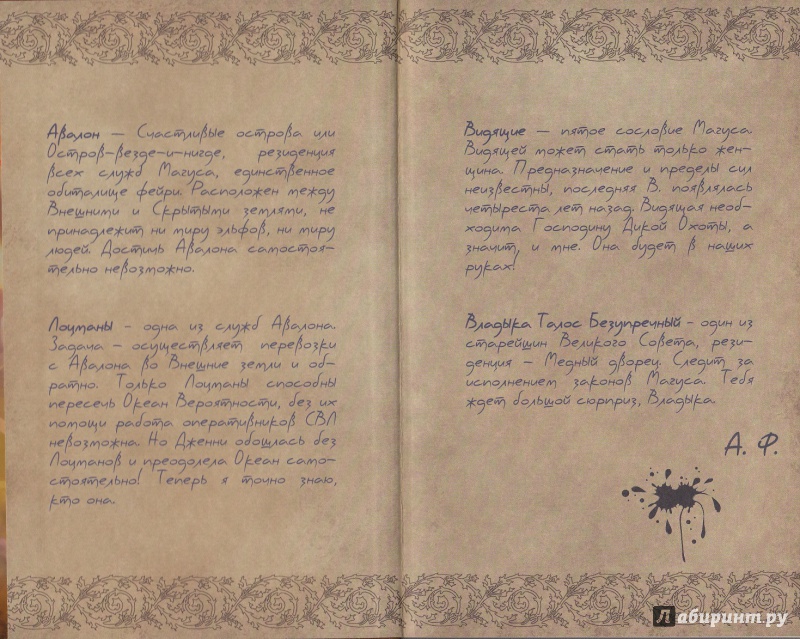 Авалон — Счастливые острова или
Остров-везде-и-нигде, резиденция
всех служб Магуса, единственное
обиталище фейри. Расположен между
Внешними и Скрытыми землями, не
принадлежит ни миру эльфов, ни миру
людей. Достичь Авалона самостоя-
тельно невозможно.
Лоцманы - одна из служб Авалона.
Задача - осуществляет перевозки
с Авалона во Внешние земли и об-
ратно. Только Лоцманы способны
пересечь Океан Вероятности, без их
помощи работа оперативников СВЛ
невозможна. Но Дженни обошлась без
Лоцманов и преодолела Океан само-
стоятельно! Теперь я точно знаю,
кто она.
Видящие — пятое сословие Магуса.
Видящей может стать только жен-
щина. Предназначение и пределы сил
неизвестны, последняя В. появлялась
четыреста лет назад. Видящая необ-
ходима Господину Дикой Охоты, а
значит, и мне. Она будет в наших
руках!
Владыка Талос Безупречный - один из
старейшин Великого Совета, рези-
денция - Медный дворец. Следит за
исполнением законов Магуса. Тебя
ждет большой сюрприз, Владыка.
А. Ф.
Лабиринт.ру